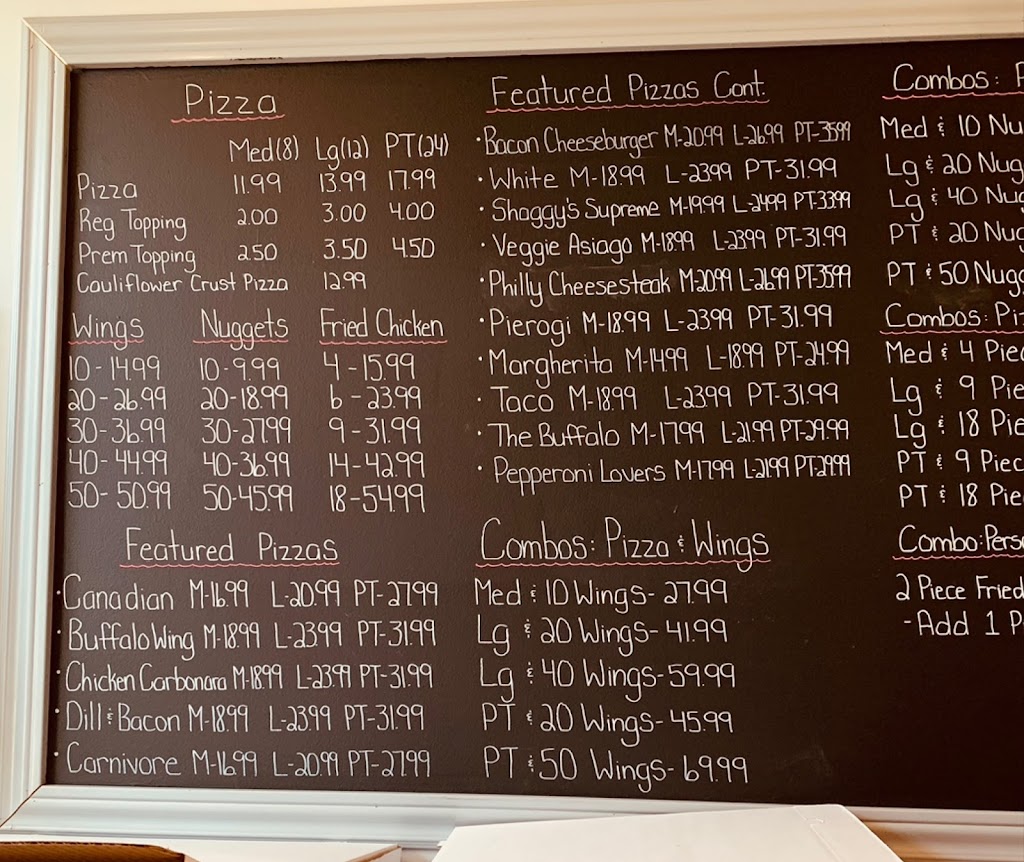 Pizza
Med(8) Lg(12) PT(24)
Pizza 11.99 13.99 17.99
Reg Topping 2.00 3.00 4.00
Prem Topping 2.50 3.50 4.50
Cauliflower Crust Pizza 12.99
Wings Nuggets Fried Chicken
10-14.99 10-9.99 4-15.99
20-26.99 20-18.99 6-23.99
30-36.99 30-27.99 9-31.99
40-44.99 40-36.99 14-42.99
50-50.99 50-45.99 18-54.99
Featured Pizzas
·Canadian M-16.99 L-20.99 PT-27.99
·Buffalo Wing M-18.99 L-23.99 PT-31.99
·Chicken Carbonara M-18.99 L-23.99 PT-31.99
·Dill & Bacon M-18.99 L-23.99 PT-31.99
·Carnivore M-16.99 L-20.99 PT-27.99
Featured Pizzas Cont.
·Bacon Cheeseburger M-20.99 L-26.99 PT-35.99
·White M-18.99 L-23.99 PT-31.99
·Shaggy's Supreme M-19.99 L-24.99 PT-33.99
·Veggie Asiago M-18.99 L-23.99 PT-31.99
·Philly Cheesesteak M-20.99 L-26.99 PT-35.99
·Pierogi M-18.99 L-23.99 PT-31.99
·Margherita M-14.99 L-18.99 PT-24.99
·Taco M-18.99 L-23.99 PT-31.99
·The Buffalo M-17.99 L-21.99 PT-29.99
·Pepperoni Lovers M-17.99 L-21.99 PT-29.99
Combos: Pizza & Wings
Med & 10 Wings-27.99
Lg & 20 Wings-41.99
Lg & 40 Wings-59.99
PT & 20 Wings-45.99
PT & 50 Wings-69.99
Combos: P
Med & 10 Nu
Lg & 20 Nug
Lg & 40 Nug
PT & 20 Nug
PT & 50 Nugg
Combos: Piz
Med & 4 Piec
Lg & 9 Pie
Lg & 18 Pie
PT & 9 Piec
PT & 18 Pie
Combo: Perso
2 Piece Fried
- Add 1 P